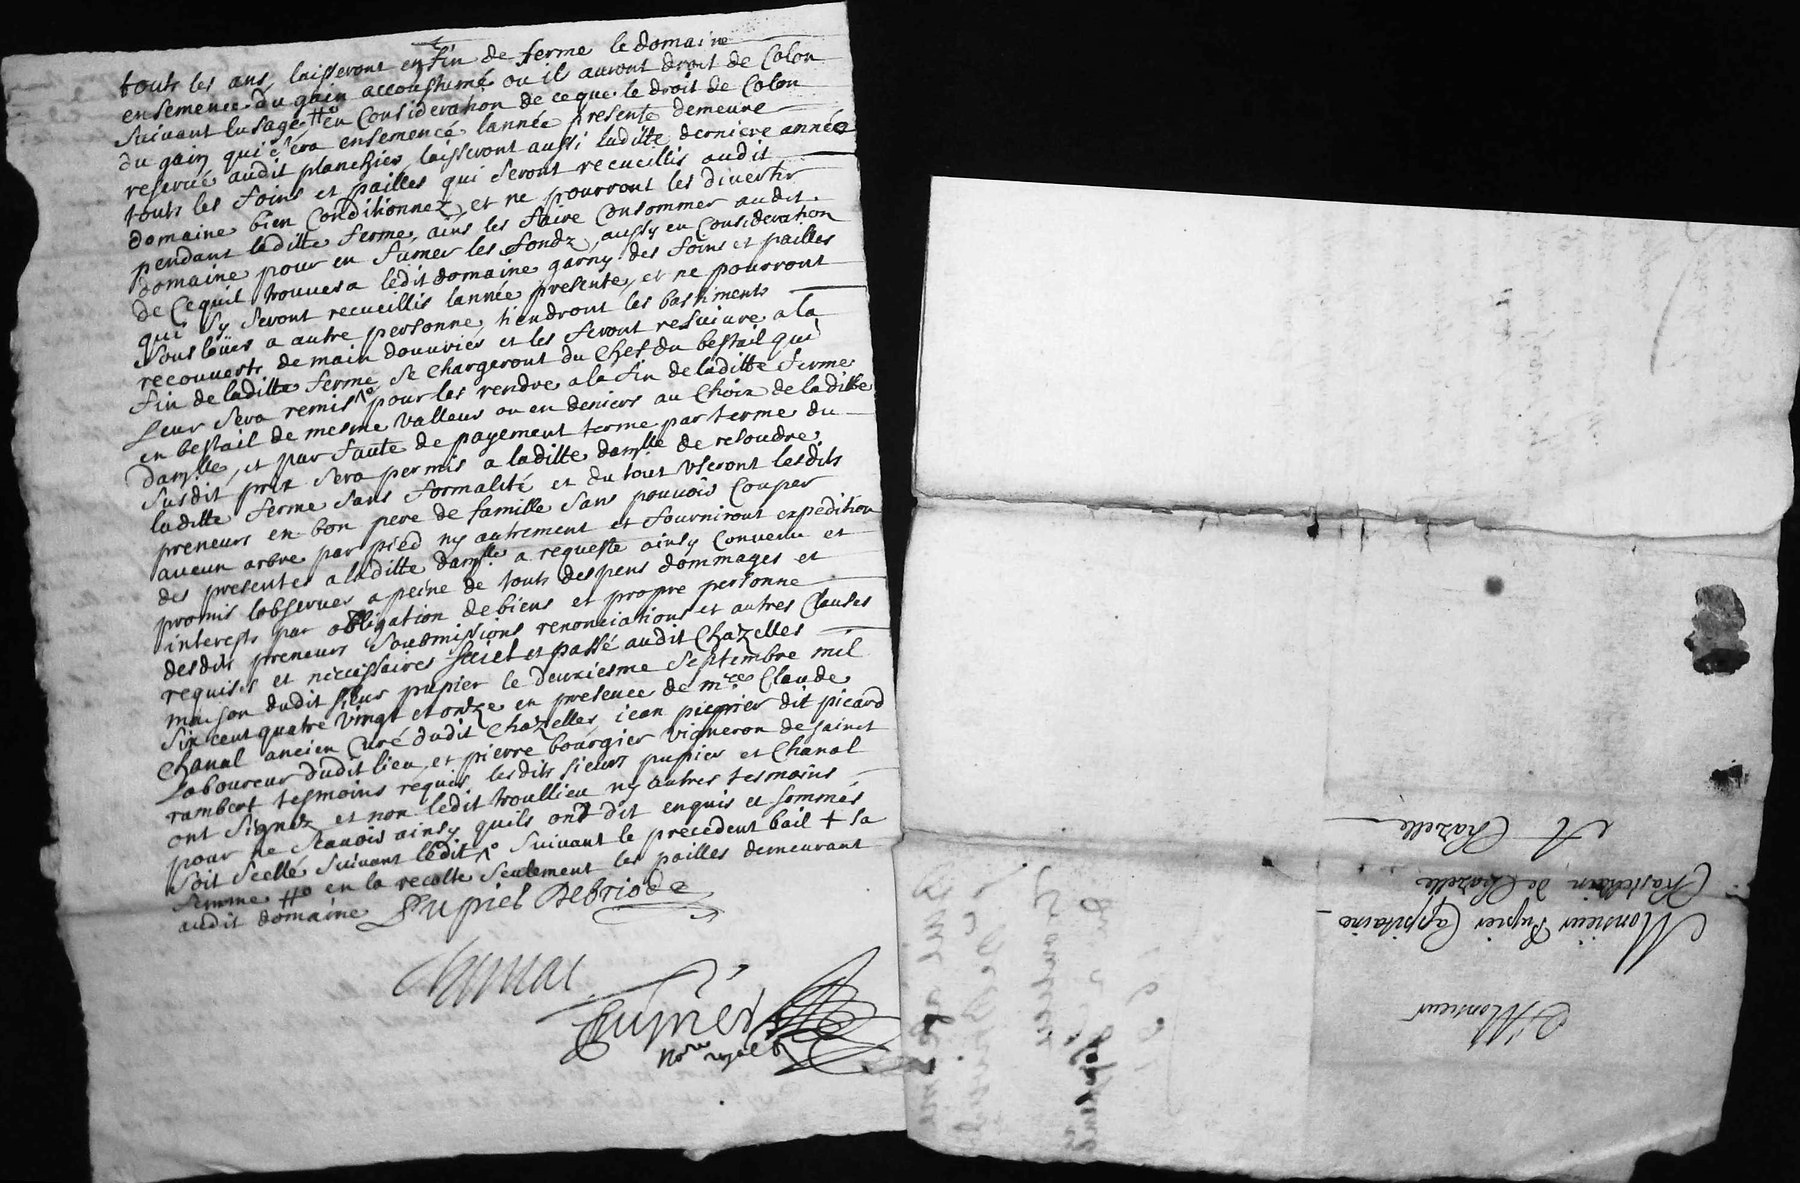 touts les ans, laisseront en fin de ferme le domaine
ensemencé du gain accoustumé ou il auront droit de Colon
suivant lusage #o en Consideration de ce que le droit de Colon
du gain qui sera ensemencé lannée presente demeure
reservé audit planchier, laisseront aussi laditte derniere année
touts les foins et pailles qui seront recueillis audit
domaine bien Conditionnez, et ne pourront les divertir
pendant laditte ferme, ains les faire Consommer audit
domaine pour en fumer les fondz, aussy en Consideration
de Ce quil trouvera ledit domaine garny des foins et pailles
qui sy seront recueillis lannée presente, et ne pourront
sous loüer a autre personne, tiendront les bastiments
recouverts de main douvrier et les feront resuivre a la
fin de laditte ferme, se Chargeront du Chef du bestail qui
Leur sera remis pour les rendre a la fin de laditte ferme
en bestail de mesme valleur ou en deniers au Choix de laditte
damlle, et par faute de payement terme par terme du
susdit prix sera permis a laditte damlle de resoudre
laditte ferme sans formalité et du tout useront lesdits
preneurs en bon pere de famille sans pouvoir Couper
aucun arbre par pied ny autrement et fourniront expedition
des presentes a laditte damlle a requeste ainsy Convenu et
promis lobserver a peine de touts despens dommages et
interests par obligation de biens et propre personne
desdits preneurs soubmissions renonciations et autres Clauses
requises et necessaires fait et passé audit Chazelles
maison dudit sieur pupier le deuxiesme septembre mil
six cent quatre vingt et onze en presence de mre Claude
Chanal ancien Curé dudit Chazelles, jean pupier dit picard
Laboureur dudit lieu, et pierre bourgier vigneron de sainct
rambert tesmoins requis lesdits sieurs pupier et Chanal
ont signez et non ledit troullieu ny autres tesmoins
pour ne scavoir ainsy quils ont dit enquis et sommés
soit scellé suivant ledit suivant le precedent bail + sa
femme #o en la recolte seulement les pailles demeurant
audit domaine Pupier Debriode
Chanal
Pupier
nore royal
A Chazelle
Chastelain de Chazelle
Monsieur Pupier Cappitaine
A Monsieur